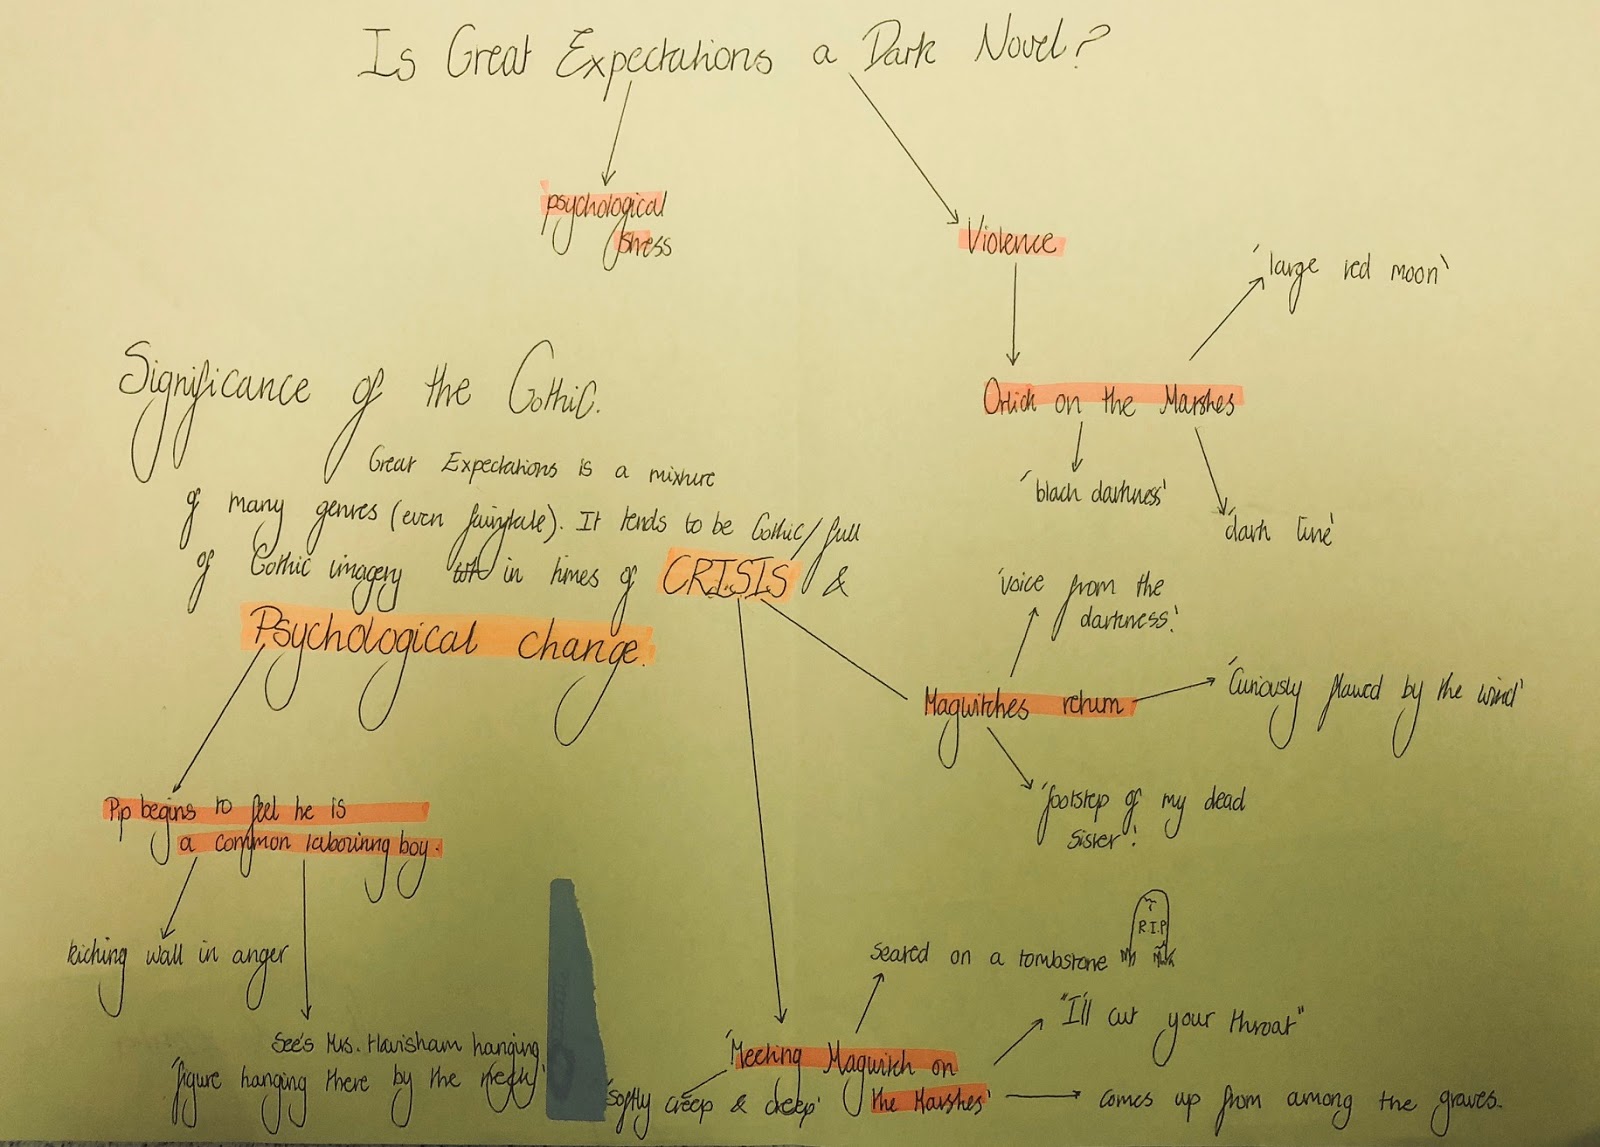 Is Great Expectations a Dark Novel?
'psychological
stress
Violence
'large red moon'
Orlick on the Marshes
'black darkness'
'dark line'
Significance of the Gothic.
Great Expectations is a mixture
of many genres (even fairytale). It tends to be Gothic/full
of Gothic imagery in times of CRISIS &
Psychological change.
'voice from the
darkness'.
Magwitches return
'Curiously flawed by the wind'
'footstep of my dead
sister'.
Pip begins to feel he is
a common labourinng boy.
kicking wall in anger
See's Mrs. Havisham hanging
'figure hanging there by the neck'
'Meeting Magwitch on
the Marshes'
'Softly creep & creep'
seated on a tombstone
R.I.P
"I'll cut your throat"
comes up from among the graves.